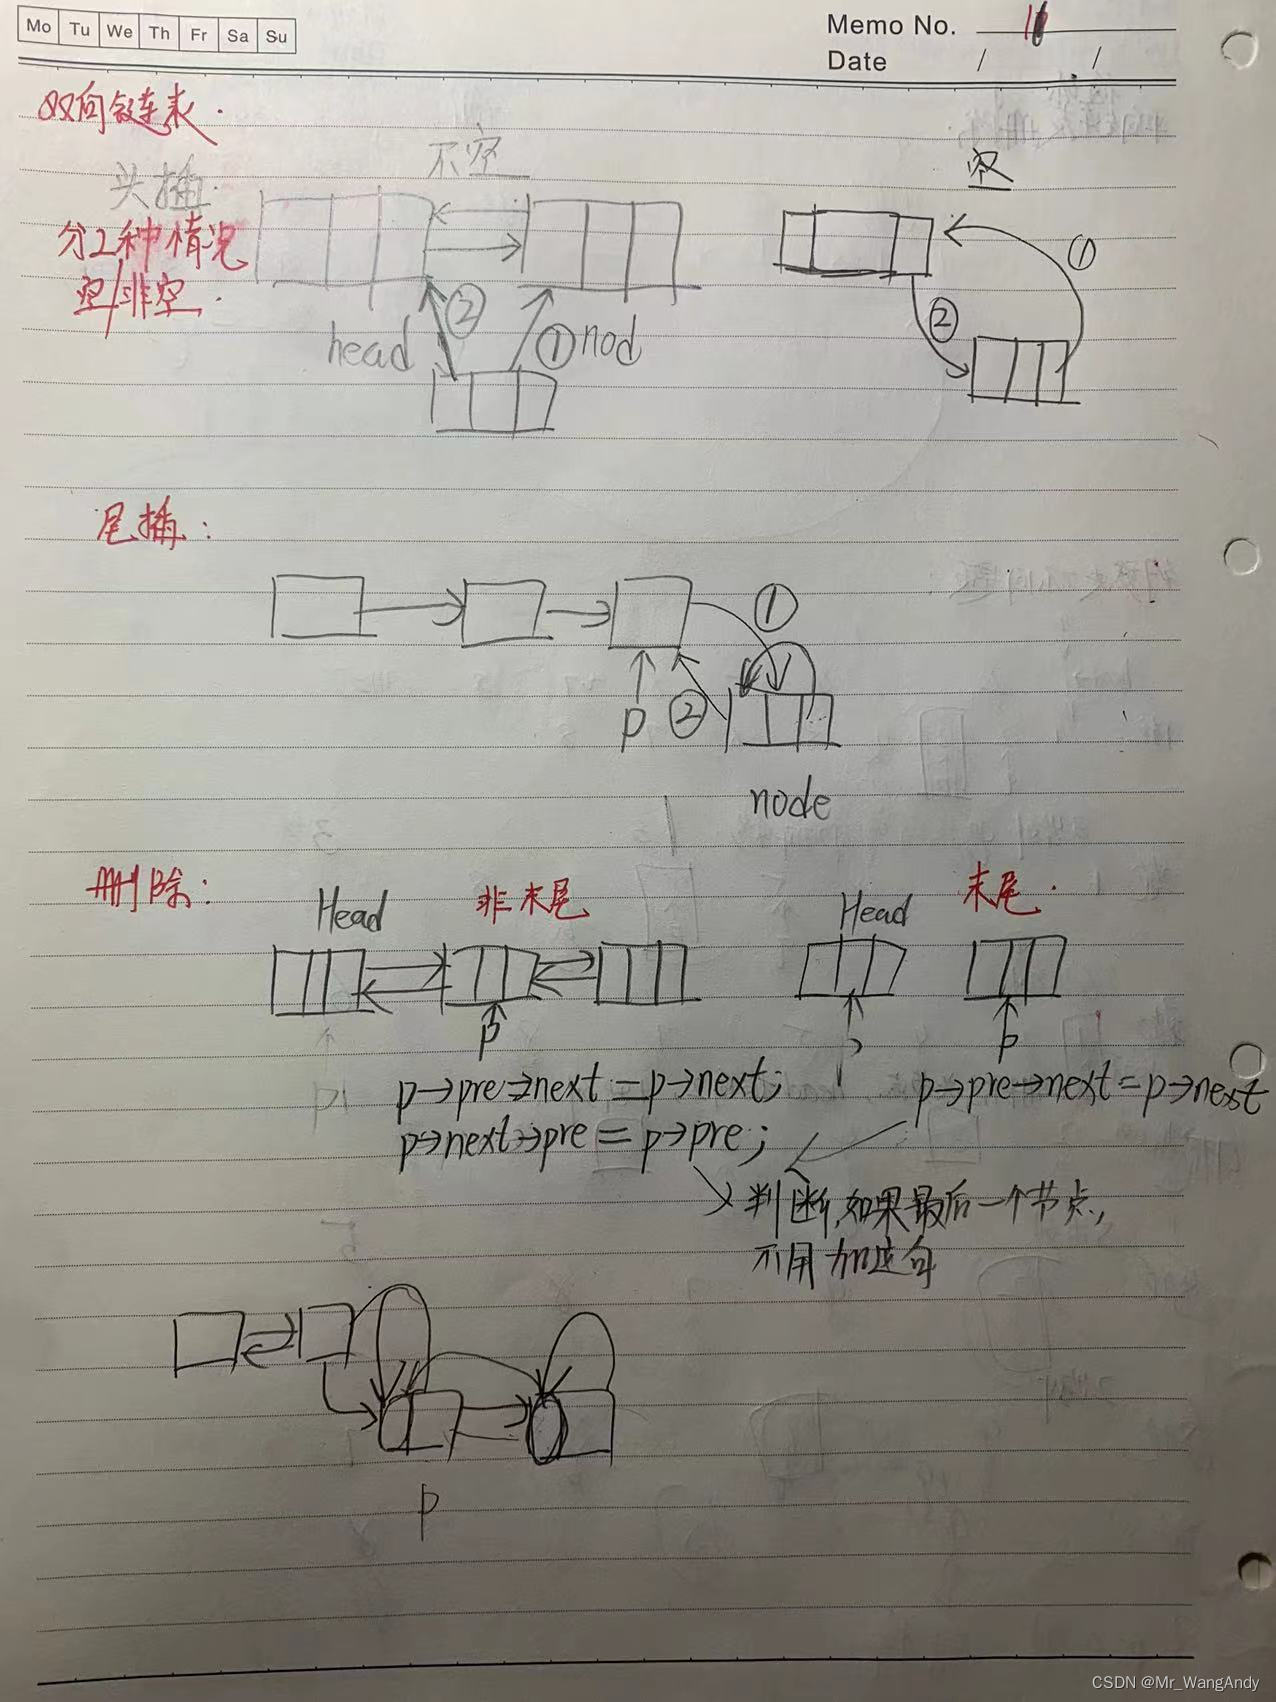 Mo Tu We Th Fr Sa Su
Memo No.
Date / /
双向链表.
头插.
不空
空
分2种情况
空/非空.
①
②
head
②
①
nod
尾插:
①
②
p
node
删除:
Head
非末尾
Head
末尾.
p
p
p→pre→next=p→next;
p→pre→next=p→next
p→next→pre=p→pre;
判断,如果最后一个节点,
不用加这句
p
CSDN @Mr_WangAndy